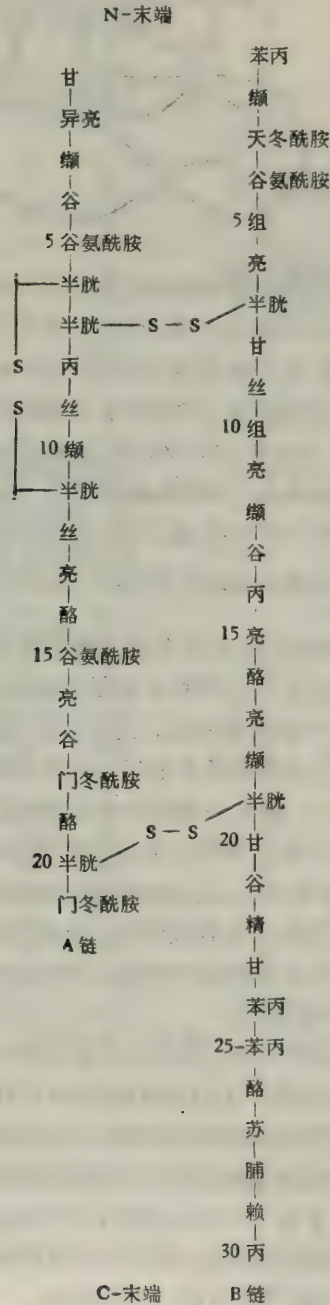 N-末端
甘
异亮
缬
谷
5 谷氨酰胺
半胱
半胱—S—S
S
丙
S
丝
10 缬
半胱
丝
亮
酪
15 谷氨酰胺
亮
谷
门冬酰胺
酪
S—S
20 半胱
门冬酰胺
A 链
苯丙
缬
天冬酰胺
谷氨酰胺
5 组
亮
半胱
甘
丝
10 组
亮
缬
谷
丙
15 亮
酪
亮
缬
半胱
20 甘
谷
精
甘
苯丙
25-苯丙
酪
苏
脯
赖
30 丙
C-末端
B 链